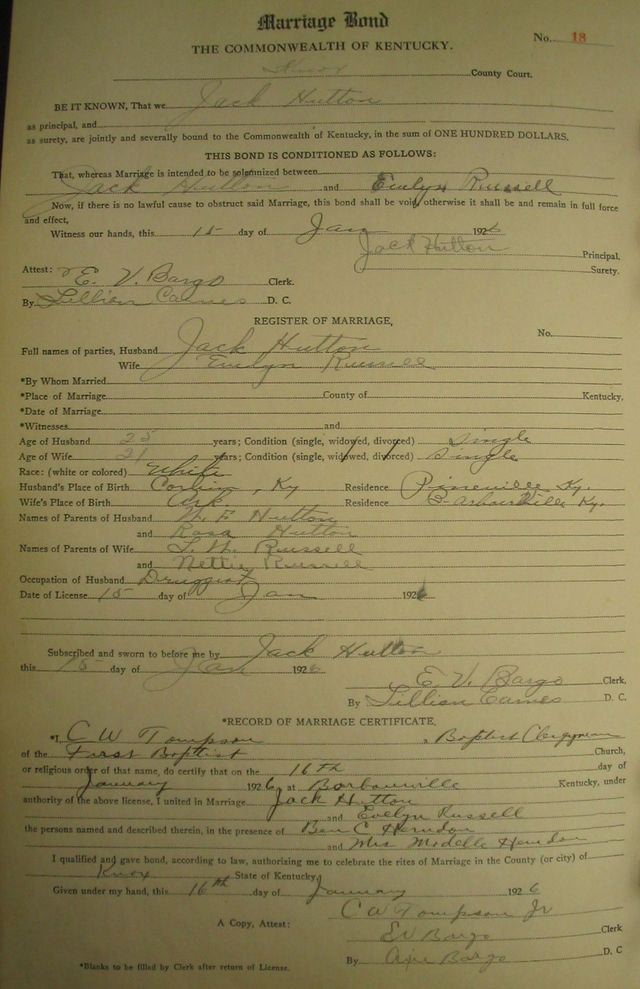 Marriage Bond
No. 18
THE COMMONWEALTH OF KENTUCKY.
Knox County Court.
BE IT KNOWN, That we Jack Hutton
as principal, and
as surety, are jointly and severally bound to the Commonwealth of Kentucky, in the sum of ONE HUNDRED DOLLARS.
THIS BOND IS CONDITIONED AS FOLLOWS:
That, whereas Marriage is intended to be solemnized between
Jack Hutton and Evelyn Russell
Now, if there is no lawful cause to obstruct said Marriage, this bond shall be void, otherwise it shall be and remain in full force
and effect,
Witness our hands, this 15 day of Jan 1926
Jack Hutton Principal.
Surety.
Attest: E. V. Bargo Clerk.
By Lillian Eames D. C.
REGISTER OF MARRIAGE,
No.
Full names of parties, Husband Jack Hutton
Wife Evelyn Russell
*By Whom Married
*Place of Marriage County of Kentucky,
*Date of Marriage
*Witnesses and
Age of Husband 25 years; Condition (single, widowed, divorced) Single
Age of Wife 21 years; Condition (single, widowed, divorced) Single
Race: (white or colored) White
Husband's Place of Birth Corbin, Ky Residence Pineville Ky.
Wife's Place of Birth Ark. Residence Barbourville Ky.
Names of Parents of Husband F Hutton
and Rosa Hutton
Names of Parents of Wife Russell
and Nettie Russell
Occupation of Husband Druggist
Date of License 15 day of Jan 1926
Subscribed and sworn to before me by Jack Hutton
this 15 day of Jan 1926
E. V. Bargo Clerk,
By Lillian Eames D. C.
*RECORD OF MARRIAGE CERTIFICATE.
*I, C W Tompson, Baptist Clergyman
of the First Baptist Church,
or religious order of that name, do certify that on the 16th day of
January 1926 at Barbourville Kentucky, under
authority of the above license, I united in Marriage Jack Hutton
and Evelyn Russell
the persons named and described therein, in the presence of Ben C Herndon
and Mrs Medelle Herndon
I qualified and gave bond, according to law, authorizing me to celebrate the rites of Marriage in the County (or city) of
Knox State of Kentucky
Given under my hand, this 16th day of January 1926
C W Tompson Jr
A Copy, Attest: EV Bargo Clerk
By Bargo D. C
*Blanks to be filled by Clerk after return of License.